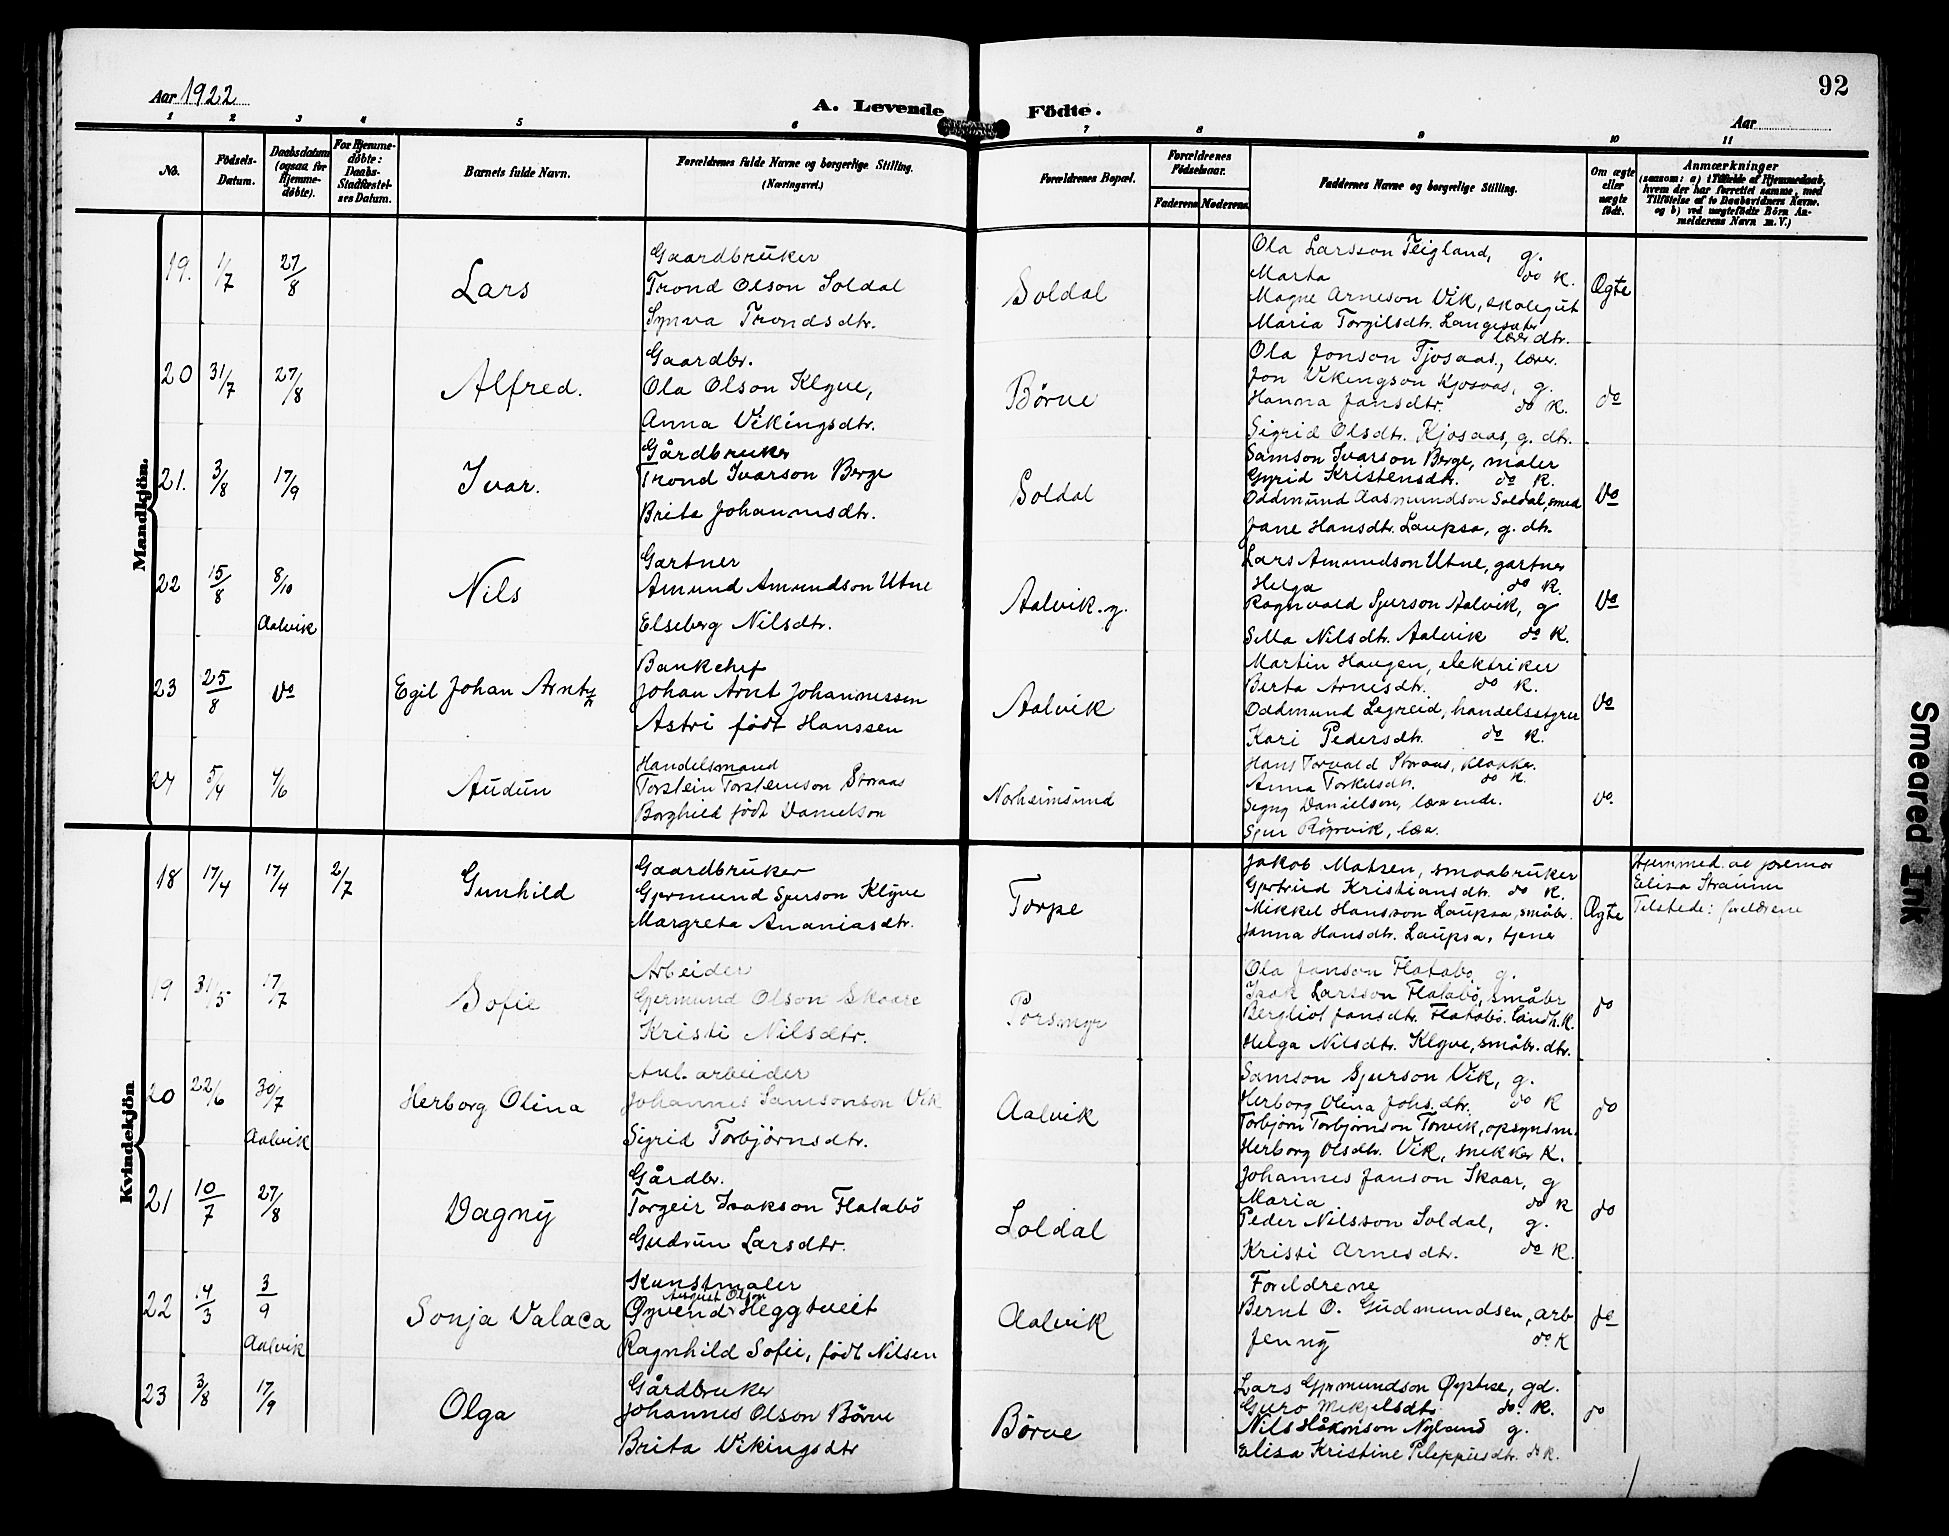 92
Aar 1922
A. Levende Födte.
Aar
1 2 3 4 5 6 7 8 9 10 11
No.
Födsels-Datum.
Daabsdatum (ogsaa for Hjemme-döbte).
For Hjemme-döbte: Daabs-Stadfæstel-ses Datum.
Barnets fulde Navn.
Forældrenes fulde Navne og borgerlige Stilling. (Næringsvei.)
Forældrenes Bopæl.
Forældrenes Födselsaar.
Faderens Moderens
Faddernes Navne og borgerlige Stilling.
Om ægte eller uægte födt.
Anmærkninger
(saasom: a) i Tilfælde af Hjemmedaab,
hvem der har forrettet samme, med
Tilföielse af to Daabsvidners Navne.
og b) ved uægtefödte Börn An-
melderens Navn m. V.)
Mandkjön.
19. 1/7 27/8 Lars
Gaardbrüker
Trond Olson Soldal
Synva Trondsdtr.
Soldal
Ola Larsson Teigland, g.
Marta do K.
Magne Arneson Vik, skolegut
Maria Torgilsdtr. Langesæter
lærerdtr.
Ægte
20 31/7 27/8 Alfred.
Gaardbr.
Ola Olson Klyve,
Anna Vikingsdtr.
Börve
Ola Jonson Tjosaas, lærer.
Jon Vikingson Kjosaas, g.
Hanna Jansdtr. do K.
Sigrid Olsdtr. Kjosaas, g. dtr.
do
21. 3/8 17/9 Ivar.
Gårdbruker
Trond Ivarson Berge
Brita Johannesdtr.
Soldal
Samson Ivarson Berge, maler
Gyrid Kristensdtr. do K.
Oddmund Aasmundson Soldal, smed
Jane Hansdtr. Laupsa, g. dtr.
Do
22 15/8 8/10 Aalvik
Nils
Gartner
Amund Amundson Utne
Elseberg Nilsdtr.
Aalvik. g.
Lars Amundson Utne, gartner
Helga do K.
Ragnvald Sjurson Aalvik, g
Sella Nilsdtr. Aalvik do K.
Do
23 25/8 Do Egil Johan Arnt
Bankchef
Johan Arnt Johannessen
Astri født Hanssen
Aalvik
Martin Haugen, elektriker
Berta Arnesdtr. do K.
Oddmund Legreid, handelsstyrer
Kari Pedersdtr. do K.
Do
24 5/4 4/6 Audün
Handelsmand
Torstein Torsteinson Storaas
Borghild født Danielson
Norheimsund
Hans Torvald Storaas, klokker.
Anna Torkelsdtr. do K
Signy Danielson, lærerinde.
Sjur Röyrvik, lær.
Do
Kvindekjön
18 17/4 17/4 2/7 Gunhild
Gaardbrüker
Gjermund Sjurson Klyve
Margreta Ananiasdtr.
Torpe
Jakob Matsen, smaabruker
Gjertrud Kristiansdtr. do K.
Mikkel Hansson Laupsa, småbr.
Janna Hansdtr. Laupsa, tjener
Ægte
Hjemmed. av jremor
Elisa Straume
Tilstede: foreldrene
19 31/5 17/7 Sofie
Arbeider
Gjermund Olson Skaare
Kristi Nilsdtr.
Porsmyr
Ola Janson Flatabö, g.
Isak Larsson Flatabö, småbr
Bergliot Jansdtr. Flatabö. landh. K.
Helga Nilsdtr. Klyve, småbr. dtr.
do
20 22/6 30/7 Aalvik
Herborg Olina
Anl. arbeider
Johannes Samsonson Vik
Sigrid Torbjørnsdtr.
Aalvik
Samson Sjurson Vik, g.
Herborg Olina Johs. dtr. do K
Torbjørn Torbjørnson Torvik, opsynsm.
Herborg Olsdtr. Vik, snikker K.
do
21 10/7 27/8 Dagny
Gårdbr.
Torgeir Isakson Flatabö
Gudrün Larsdtr.
Soldal
Johannes Janson Skaar, g
Maria do K
Peder Nilsson Soldal, g.
Kristi Arnesdtr. do K.
do
22 4/3 3/9 Aalvik
Sonja Valaca
Kunstmaler
August Olson
Øyvend Heggtveit
Ragnhild Sofie, født Nilsen
Aalvik
Foreldrene
Bernt O. Gudmundsen, arb
Jenny do K
do
23 3/8 17/9 Olga
Gårdbruker
Johannes Olson Börve
Brita Vikingsdtr
Börve
Lars Gjermundson Øystese, gd.
Guro Mikjelsdtr do. K.
Nils Håkonson Nyland g.
Elisa Kristine Pileppusdtr. do K.
do
Smeared Ink